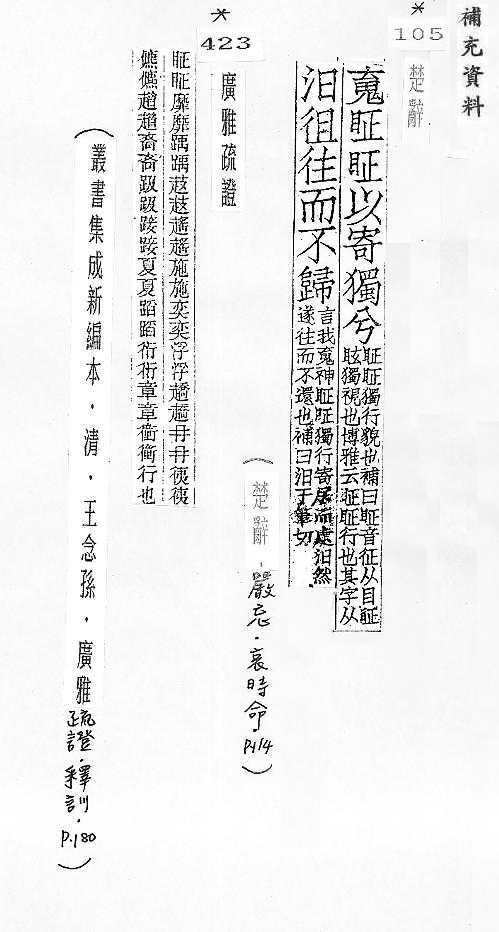 補充資料
* 105
楚辭
䰟眐眐以寄獨兮
眐眐獨行貌也補曰眐音征从目眐
眩獨視也博雅云眐眐行也其字从
汩徂往而不歸
言我䰟神眐眐獨行寄居而處汩然
遂往而不還也補曰汩于筆切
(楚辭,嚴忌.哀時命,P.114)
* 423
廣雅疏證
眐眐靡靡踽踽遙遙施施奕奕浮浮冄冄
儦儦趙趙裔裔趿趿踜踜夏夏蹈蹈衎衎章章行也
(叢書集成新編本,清,王念孫,廣雅疏證.釋訓.P.180)